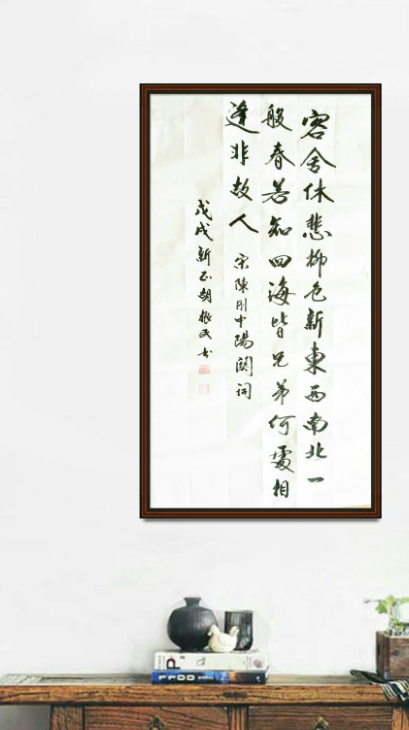 客舍休悲柳色新東西南北一
般春若知四海皆兄弟何處相
逢非故人
宋陳剛中陽關詞
戊戌新正胡振民书
P
1100